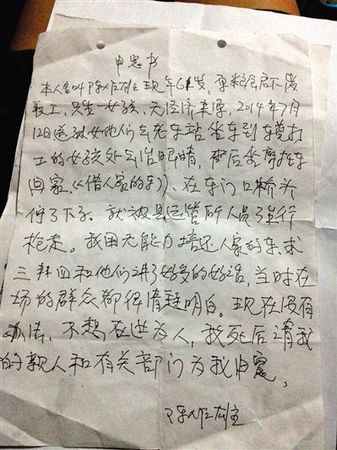 申冤书
本人名叫陈 雄 现年61岁,系粮食局下
职工,先生一女孩,无经济来源,2014年7月
12日送 女他们去东站坐车到东莞打
工的女孩处去治眼睛, 后 摩托车
回家。(借人家的车)、在东门口桥头
停了下子。就被县运管所人员 强行
抢走。我因无能力培还人家的车求
三拜四和他们讲了好多的好话,当时在
场的群众都很清楚明白。现在没有
办法,不想在世为人,我死后请我
的亲人和有关部门为我申冤,
陈 雄